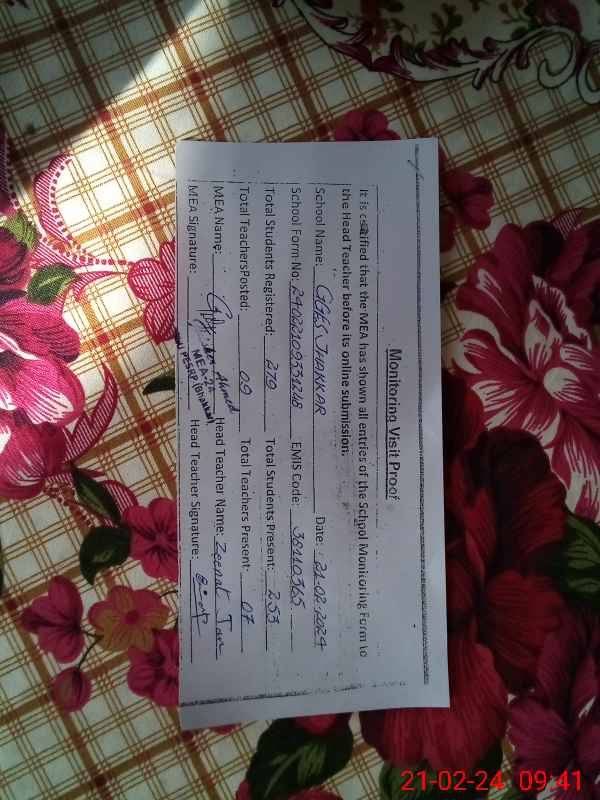 Monitoring Visit Proof
It is certified that the MEA has shown all entries of the School Monitoring Form to
the Head Teacher before its online submission.
School Name: GGES JHAKKAR Date: 21-02-2024
School Form No: EMIS Code: 38110365
Total Students Registered: 279 Total Students Present: 253
Total TeachersPosted: 09 Total Teachers Present: 07
MEA Name: Ahmed Head Teacher Name: Zeenat
MEA Signature: MEA-24 Head Teacher Signature:
21-02-24 09:41